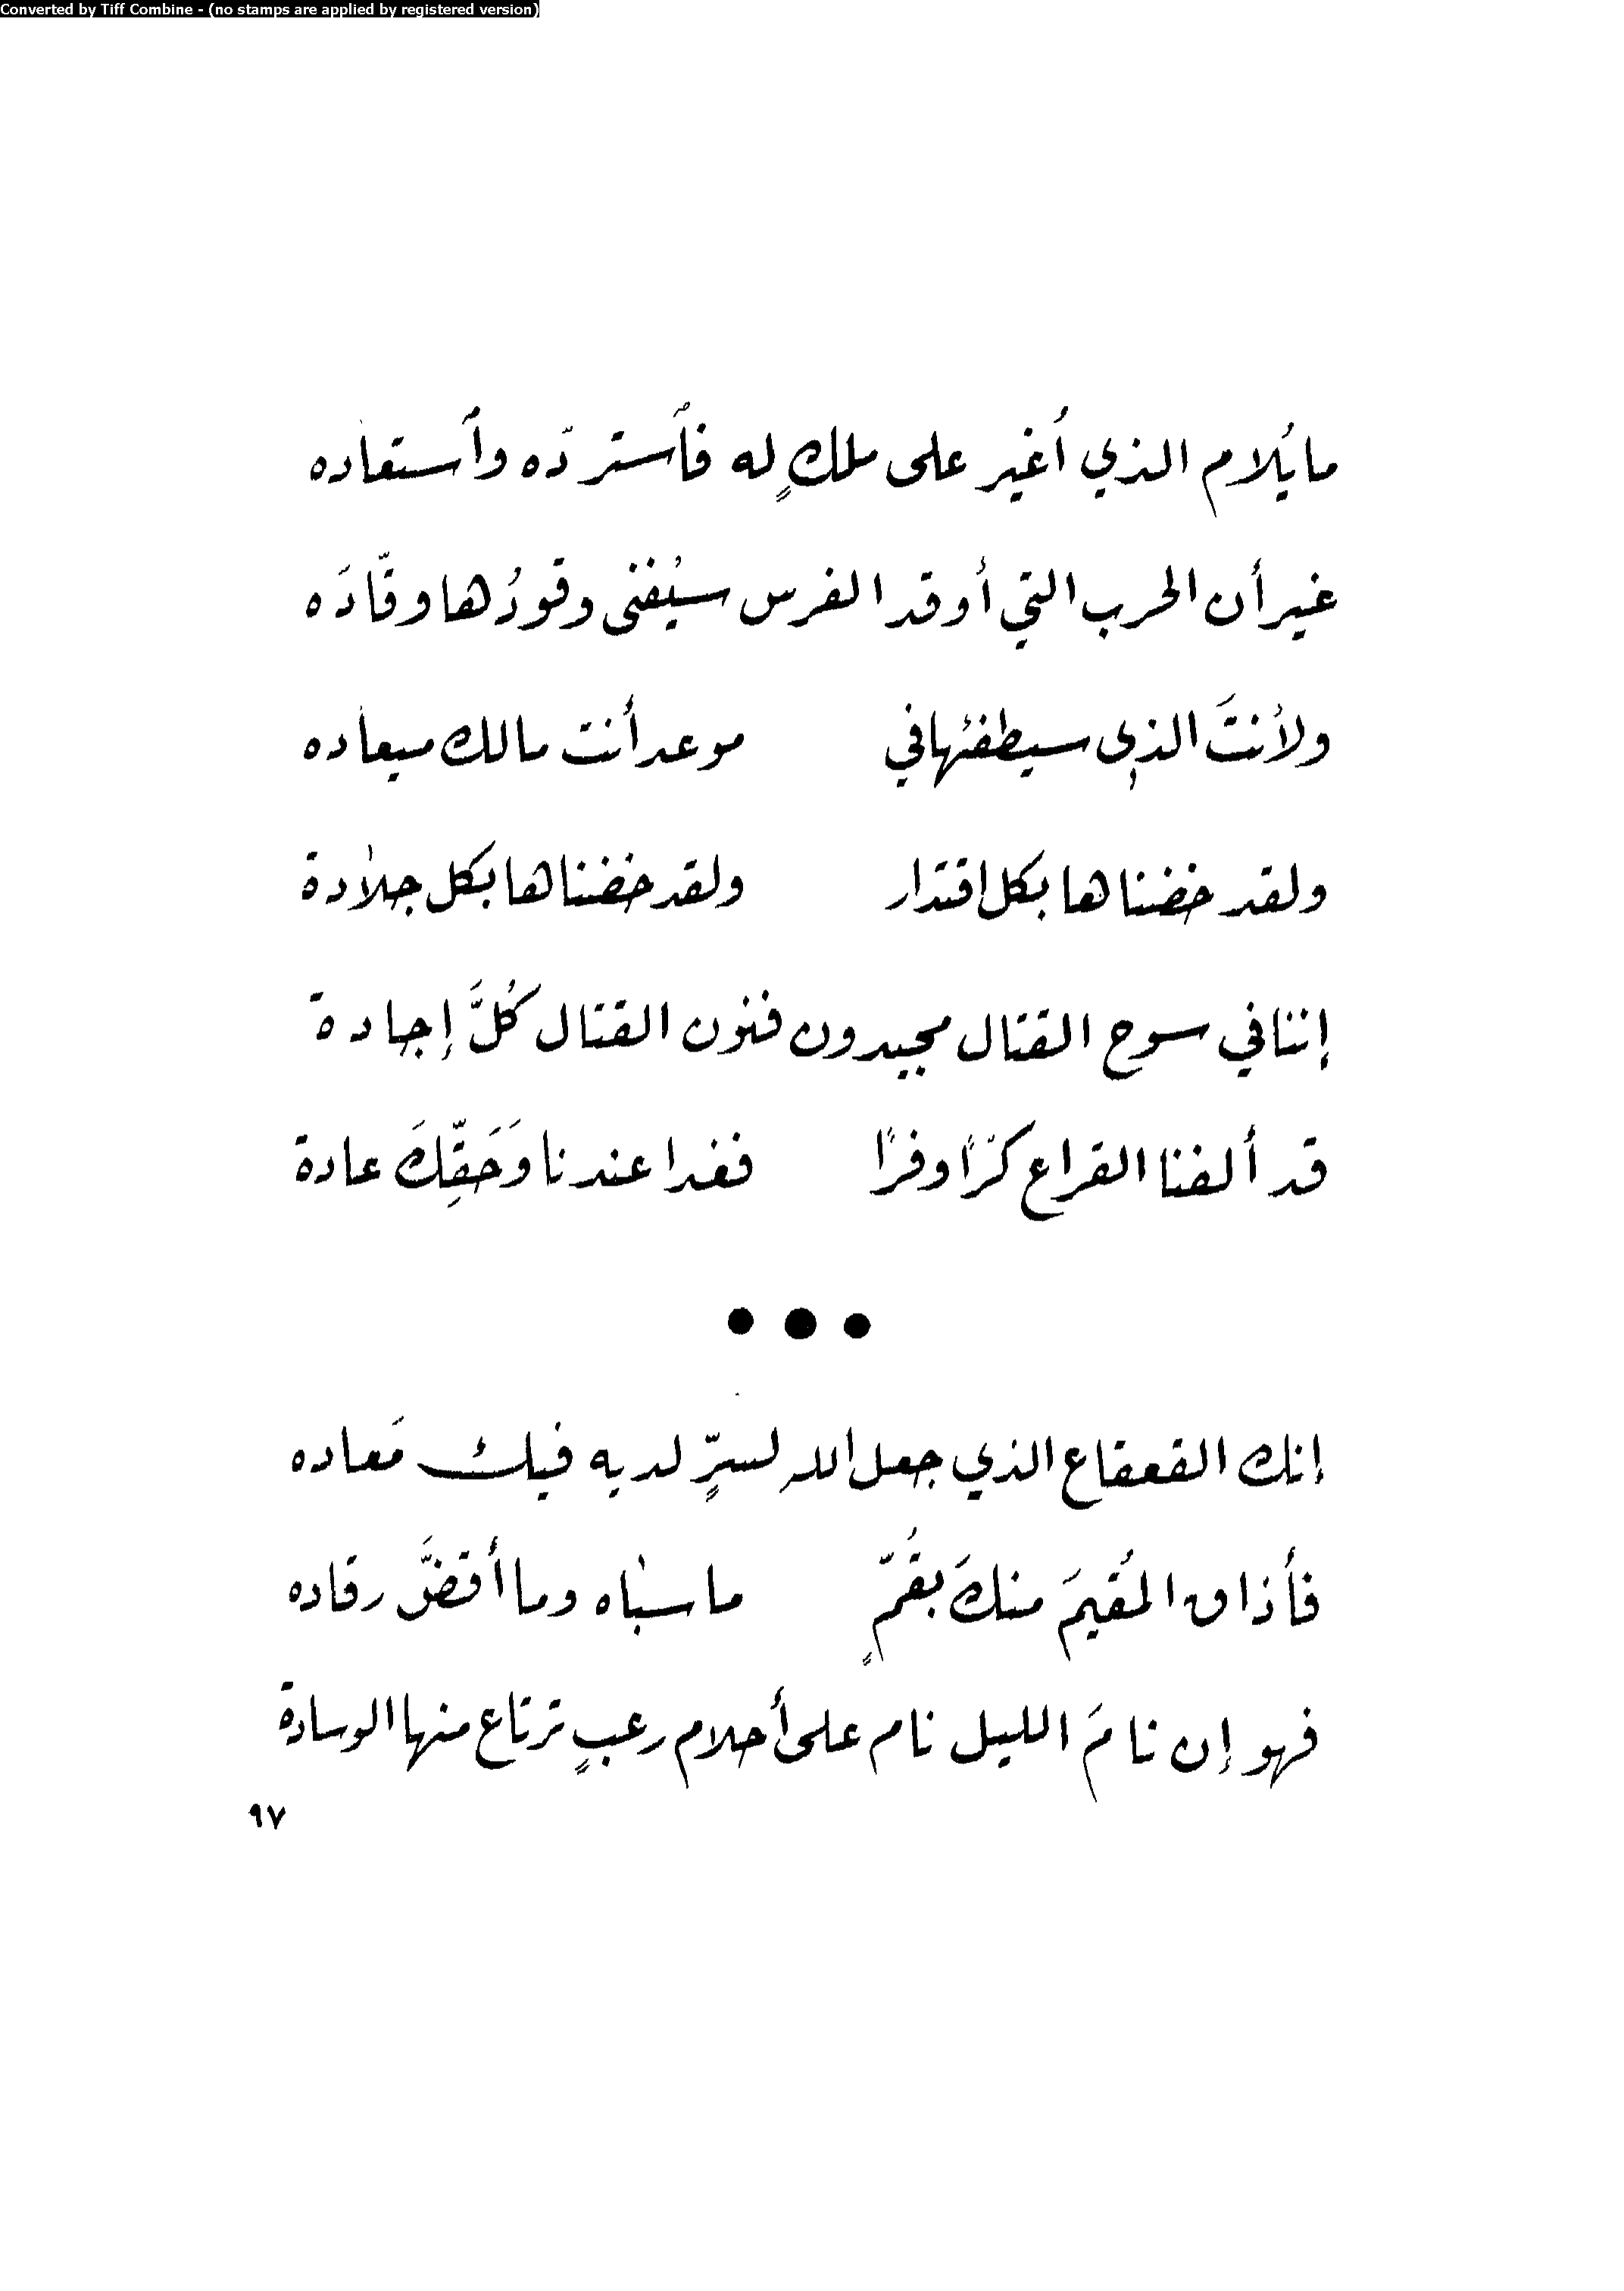 Converted by Tiff Combine - (no stamps are applied by registered version)
ما يُلام الذي أُغير على ملكٍ له فٱستردّه وٱستعاده
غير أن الحرب التي أوقد الفرس سيُفنى وقودُها وقّادَه
ولأنتَ الذي سيطفئها في موعد أنت مالك ميعاده
ولقد خضناها بكل اقتدار ولقد خضناها بكل جلادة
إننا في سوح القتال مجيدون فنون القتال كُلَّ إجادة
قد ألفنا القراع كرًّا وفرًا فغدا عندنا وَحَقِّكَ عادة
•••
إنك القعقاع الذي جعل الله لسرٍّ لديه فيك مَعاده
فأذاق المُقيمَ منكَ بقُمٍّ ما سباه وما أقضَّ رقاده
فهو إن نامَ الليل نام على أحلام رعبٍ ترتاع منها الوسادة
٩٧